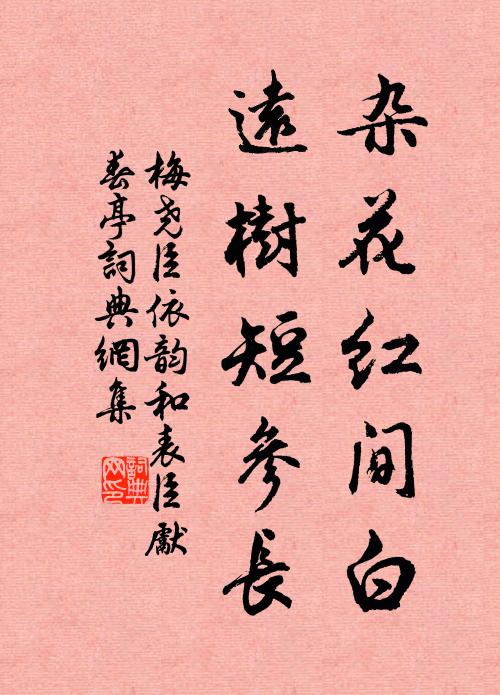 杂花红間白
遠樹短參長
梅尧臣依韵和表臣獻
春亭詞典網集
詞典网印